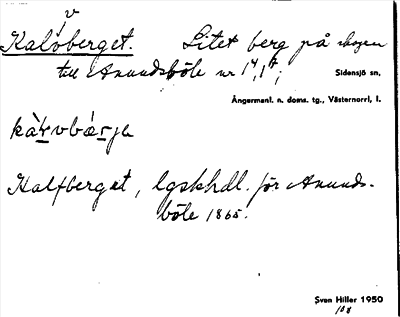 v
Kalöberget. Litet berg på skogen
till Anundsböle nr 1⁴, 1⁷;
Sidensjö sn,
Ångermanl. n. doms. tg., Västernorrl, l.
Kalfberget, lgskhdl. för Anunds-
böle 1865.
Sven Hiller 1950
108